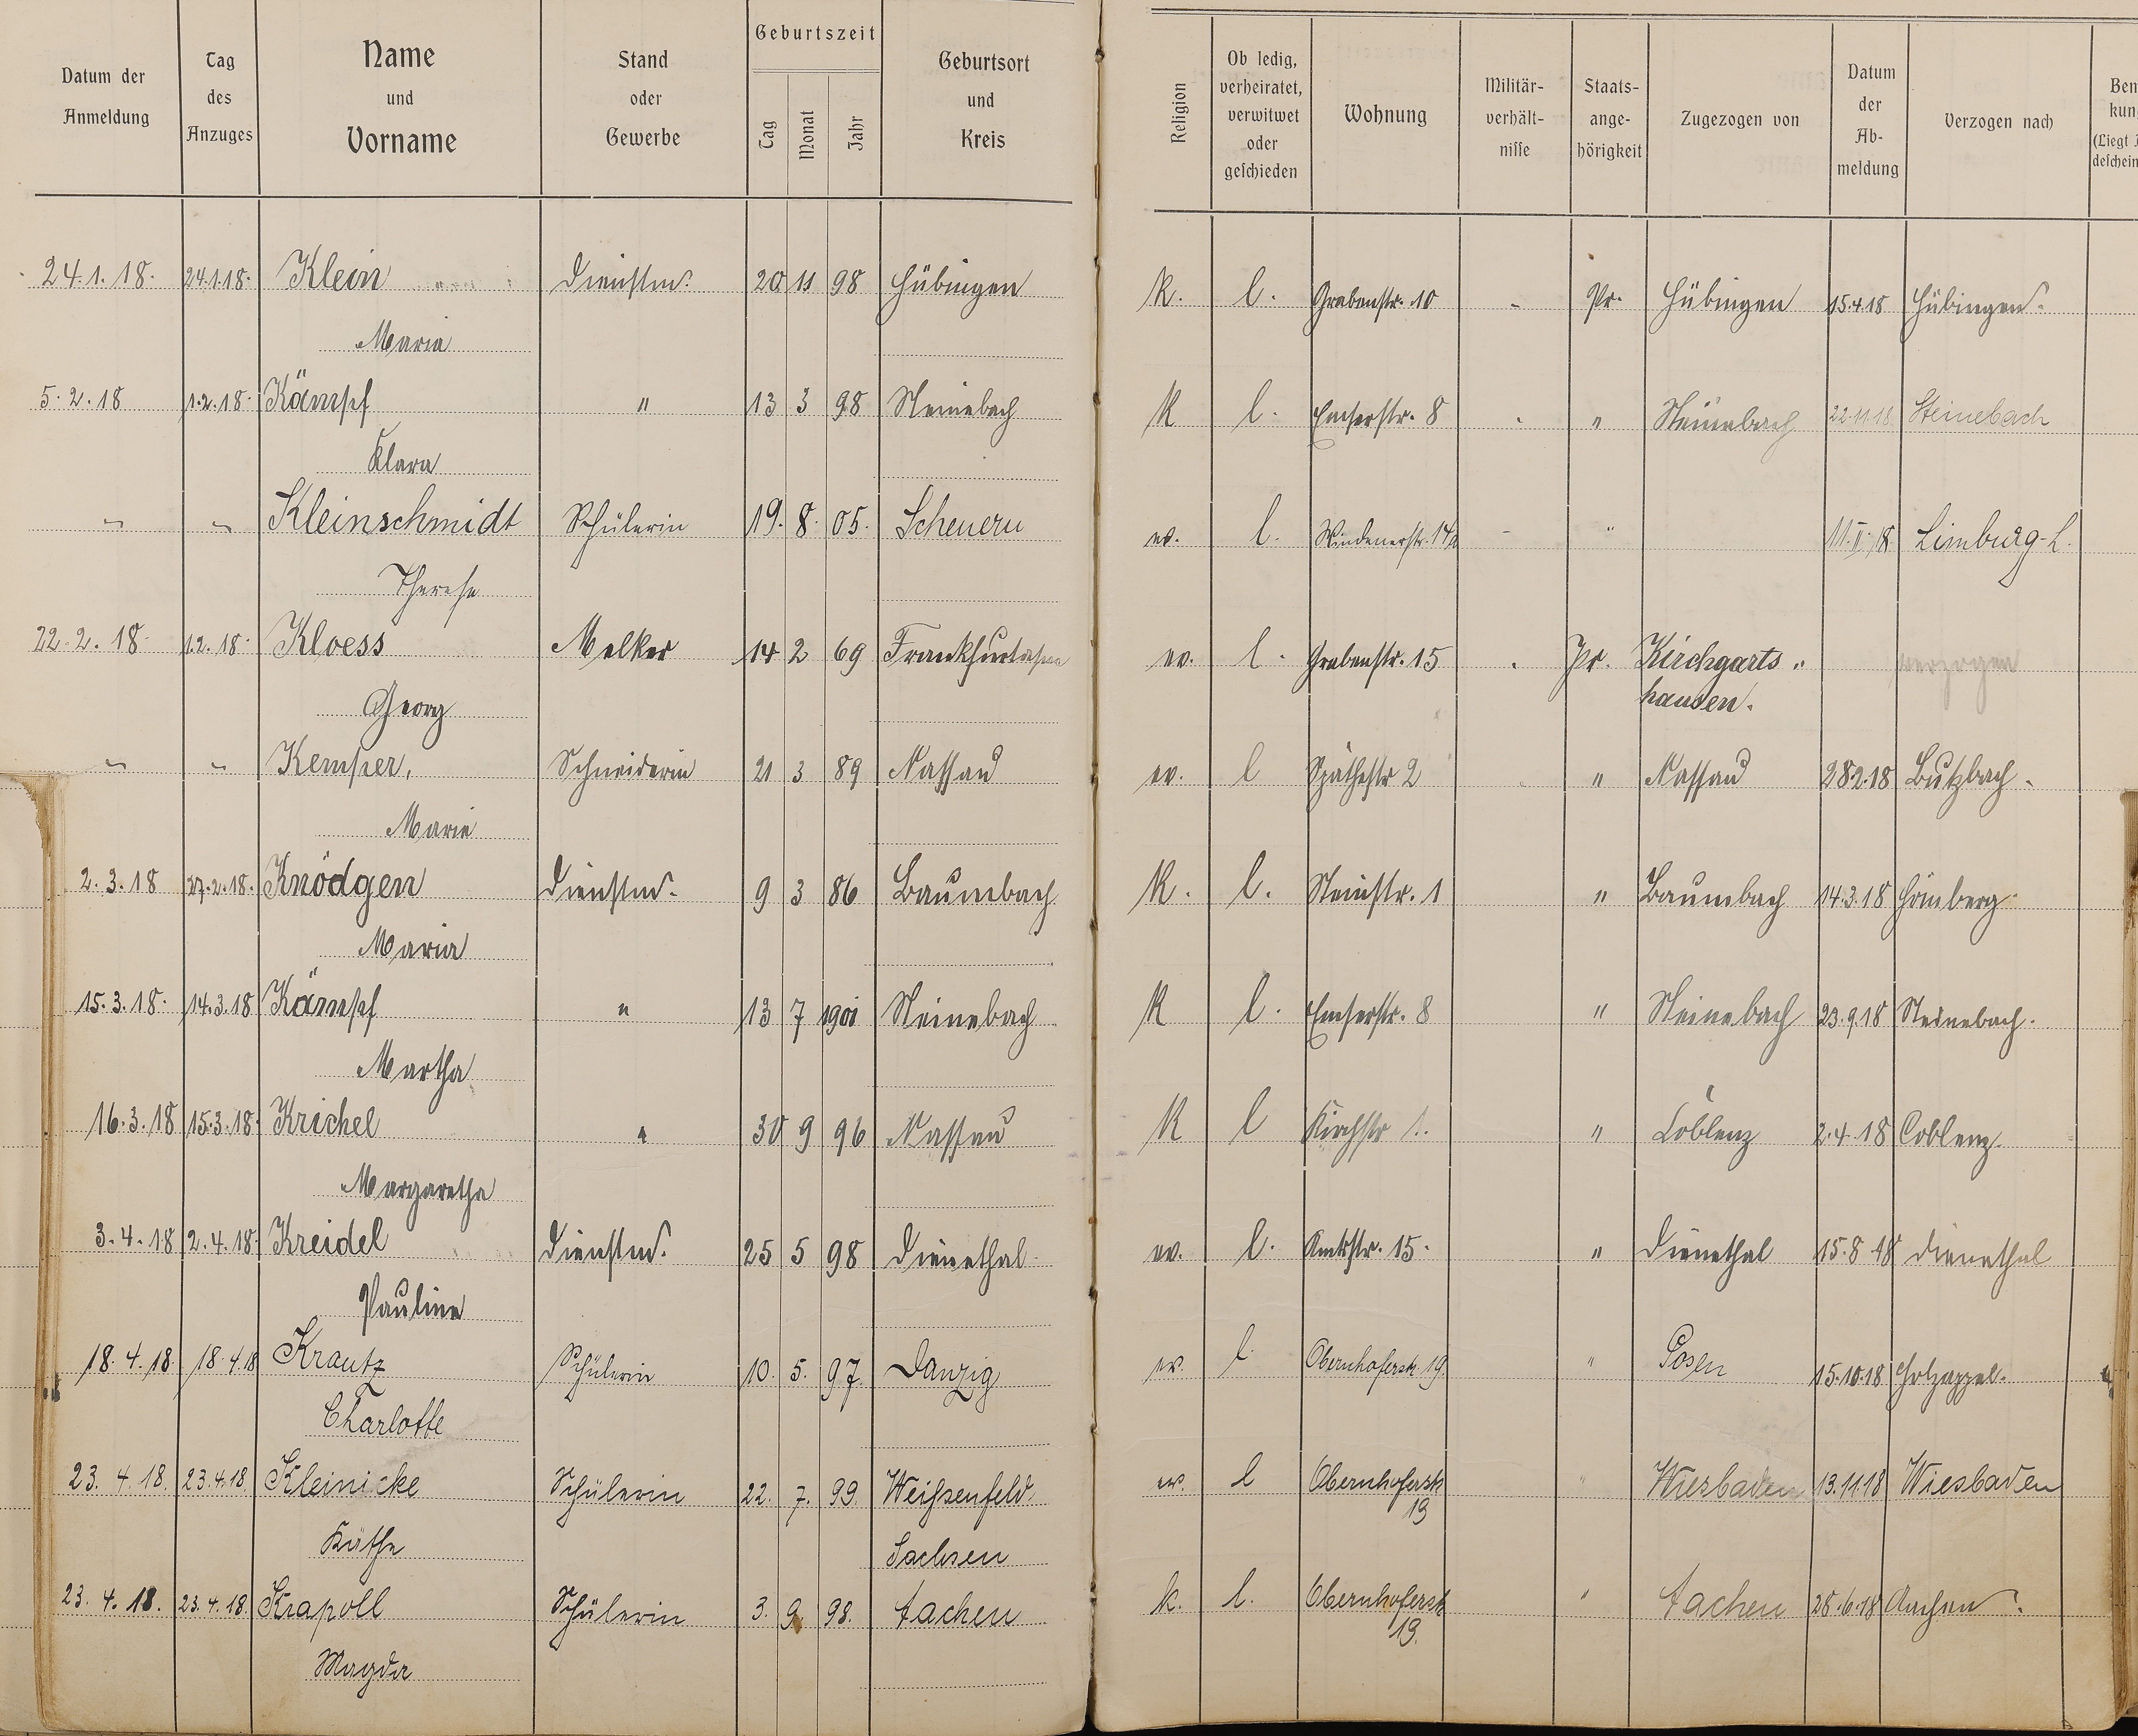 Datum der Anmeldung | Tag des Anzuges | Name und Vorname | Stand oder Gewerbe | Geburtszeit Tag Monat Jahr | Geburtsort und Kreis | Religion | Ob ledig, verheiratet, verwitwet oder geschieden | Wohnung | Militär-verhält-nisse | Staats-ange-hörigkeit | Zugezogen von | Datum der Ab-meldung | Verzogen nach
24.1.18. 24.1.18. Klein Dienstm. 20 11 98 Hübingen K. l. Grabenstr. 10 - Pr. Hübingen 15.4.18 Hübingen.
Maria
5.2.18 1.2.18. Kämpf " 13 3 98 Steinebach K l. Emserstr. 8 " Steinebach 22.11.18 Steinebach
Klara
" " Kleinschmidt Schülerin 19. 8. 05. Scheuern ev. l. Windenerstr. 14a - " 11.II.18 Limburg-L.
Therese
22.2.18. 1.2.18. Kloess Melker 14 2 69 ev. l. Grabenstr. 15 Pr. Kirchgarts- verzogen
Georg hausen.
" " Kemper, Schneiderin 21 3 89 Nassau ev. l Späthestr 2 " Nassau 28.2.18 Butzbach.
Marie
2.3.18 27.2.18. Knödgen Dienstm. 9 3 86 Baumbach K. l. Steinstr. 1 " Baumbach 14.3.18 Hömberg.
Maria
15.3.18. 14.3.18 Kämpf " 13 7 1901 Steinebach K l. Emserstr. 8 " Steinebach 23.9.18 Steinebach.
Martha
16.3.18 15.3.18. Krichel " 30 9 96 Nassau K l Kirchstr 1. " Coblenz 2.4.18 Coblenz.
Margaretha
3.4.18 2.4.18. Kreidel Dienstm. 25 5 98 Dienethal ev. l. Amtstr. 15. " Dienethal 15.8.18 Dienethal
Pauline
18.4.18. 18.4.18 Krautz Schülerin 10. 5. 97. Danzig ev. l. Obernhoferstr. 19. " Posen 15.10.18 Holzappel.
Charlotte
23.4.18. 23.4.18. Kleinicke Schülerin 22. 7. 99. Weißenfeld ev. l Obernhoferstr. " Wiesbaden 13.11.18 Wiesbaden
19
Käthe Sachsen
23.4.18. 23.4.18. Krapoll Schülerin 3. 9. 98. Aachen k. l. Obernhoferstr. " Aachen 28.6.18 Aachen.
19.
Magda